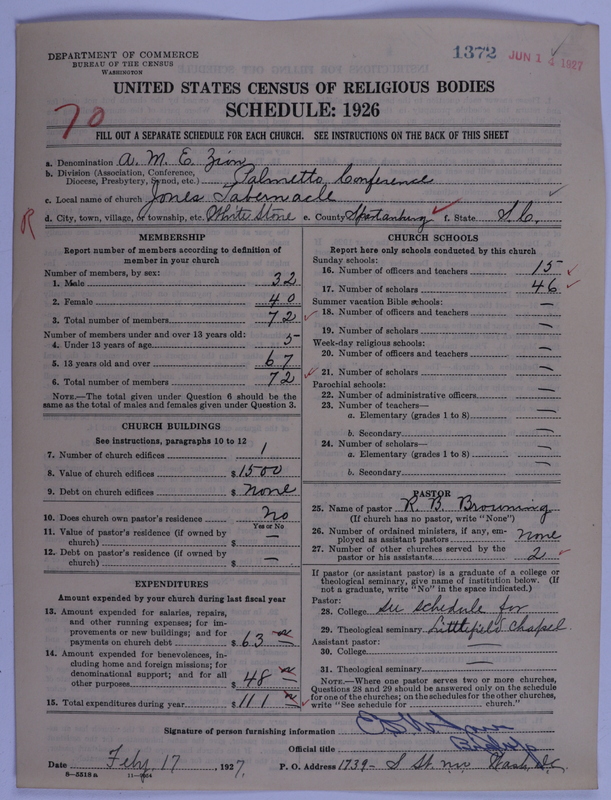 DEPARTMENT OF COMMERCE
BUREAU OF THE CENSUS
WASHINGTON
1372 JUN 14 1927
UNITED STATES CENSUS OF RELIGIOUS BODIES
SCHEDULE: 1926
70
FILL OUT A SEPARATE SCHEDULE FOR EACH CHURCH. SEE INSTRUCTIONS ON THE BACK OF THIS SHEET
a. Denomination A. M. E. Zion
b. Division (Association, Conference, Diocese, Presbytery, Synod, etc.) Palmetto Conference
c. Local name of church Jones Tabernacle
R
d. City, town, village, or township, etc. White Stone e. County Spartanburg f. State S. C.
MEMBERSHIP
Report number of members according to definition of
member in your church
Number of members, by sex:
1. Male 32
2. Female 40
3. Total number of members 72
Number of members under and over 13 years old:
4. Under 13 years of age 5
5. 13 years old and over 67
6. Total number of members 72
NOTE.—The total given under Question 6 should be the
same as the total of males and females given under Question 3.
CHURCH BUILDINGS
See instructions, paragraphs 10 to 12
7. Number of church edifices 1
8. Value of church edifices $ 1500
9. Debt on church edifices $ None
10. Does church own pastor's residence No
Yes or No
11. Value of pastor's residence (if owned by
church) $ —
12. Debt on pastor's residence (if owned by
church) $ —
EXPENDITURES
Amount expended by your church during last fiscal year
13. Amount expended for salaries, repairs,
and other running expenses; for im-
provements or new buildings; and for
payments on church debt $ 63
14. Amount expended for benevolences, in-
cluding home and foreign missions; for
denominational support; and for all
other purposes $ 48
15. Total expenditures during year $ 111
CHURCH SCHOOLS
Report here only schools conducted by this church
Sunday schools:
16. Number of officers and teachers 15
17. Number of scholars 46
Summer vacation Bible schools:
18. Number of officers and teachers —
19. Number of scholars —
Week-day religious schools:
20. Number of officers and teachers —
21. Number of scholars —
Parochial schools:
22. Number of administrative officers —
23. Number of teachers—
a. Elementary (grades 1 to 8) —
b. Secondary —
24. Number of scholars—
a. Elementary (grades 1 to 8) —
b. Secondary —
PASTOR
25. Name of pastor R. B. Browning
(If church has no pastor, write "None")
26. Number of ordained ministers, if any, em-
ployed as assistant pastors None
27. Number of other churches served by the
pastor or his assistants 2
If pastor (or assistant pastor) is a graduate of a college or
theological seminary, give name of institution below. (If
not a graduate, write "No" in the space indicated.)
Pastor:
28. College See schedule for
29. Theological seminary Littlefield Chapel
Assistant pastor:
30. College —
31. Theological seminary —
NOTE.—Where one pastor serves two or more churches,
Questions 28 and 29 should be answered only on the schedule
for one of the churches; on the schedules for the other churches,
write "See schedule for church."
Signature of person furnishing information
Official title Bishop
Date Feby 17, 1927. P. O. Address 1739 - S St. nw Wash, DC
8—5518a 11—7964